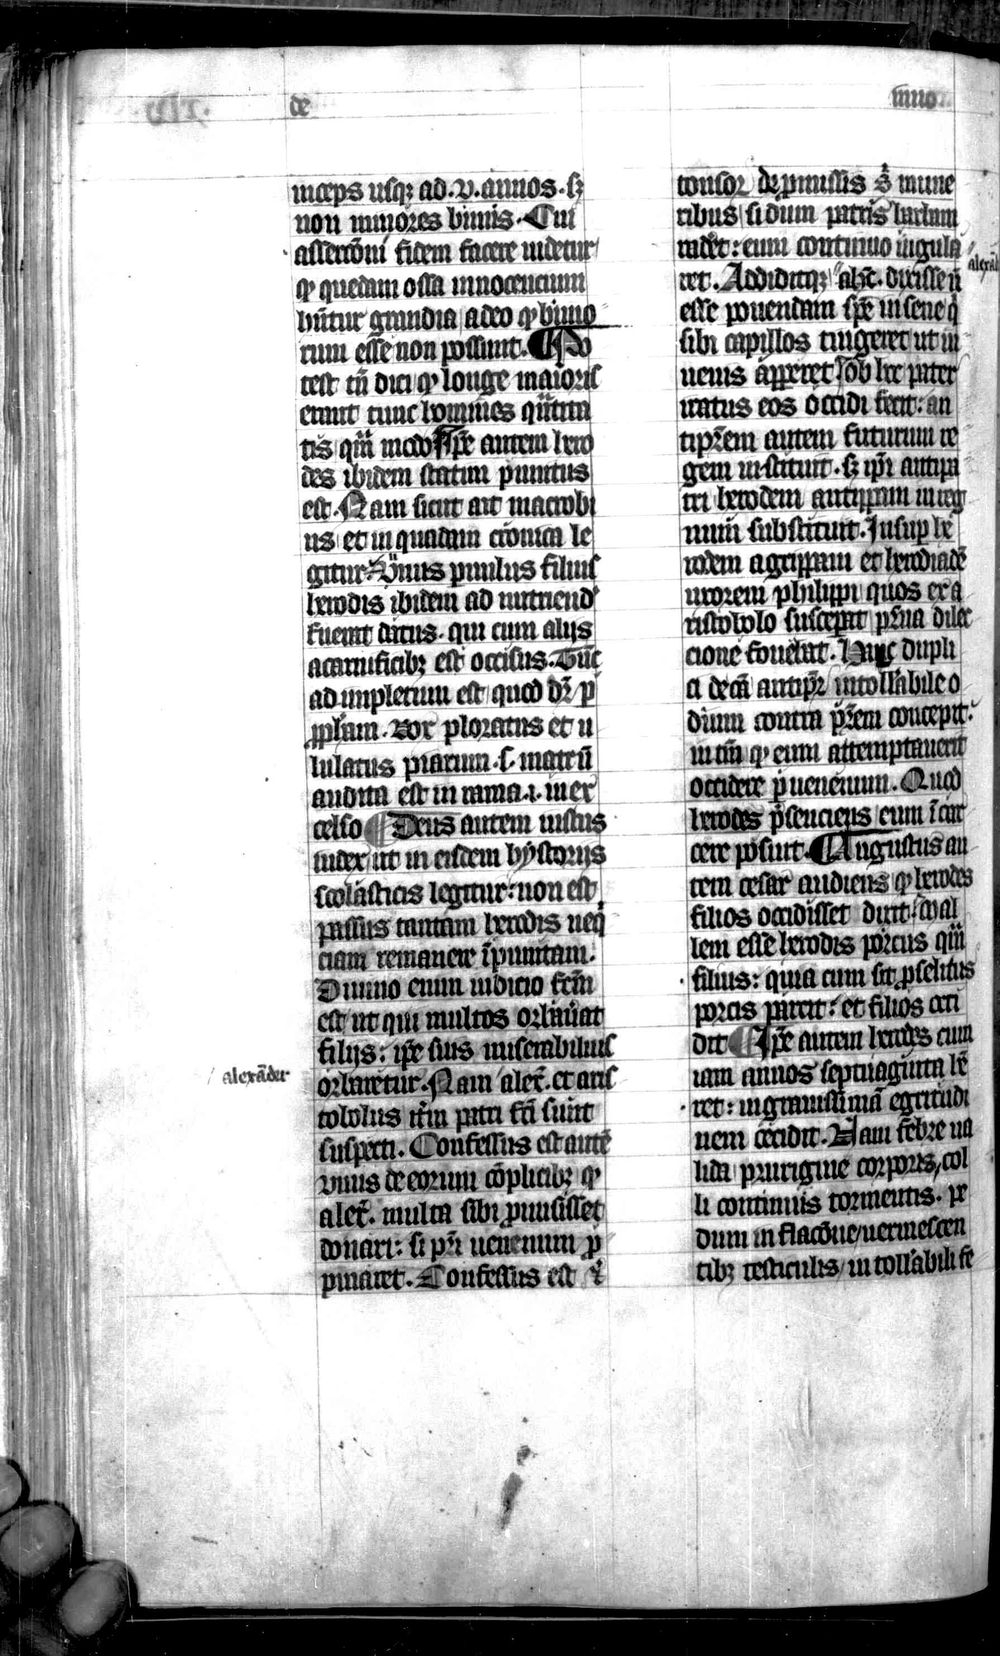 de
inno
inceps usqꝫ ad .v. annos . sꝫ
non minores bimis . Cui
assercōni fidem facere uidetur
ꝙ quedam ossa innocencium
hn̄tur grandia adeo ꝙ bimo
rum esse non possunt . ¶ Po
test tn̄ dici ꝙ longe maioris
erant tunc homines qn̄tita
tis qm̄ modo ¶ Ip̄e autem hero
des ibidem statim punitus
est . Nam sicut ait macrobi
us et in quadam cronica le
gitur . Vnus puulus filius
herodis ibidem ad nutriend
fuerat datus . qui cum alijs
a carnificibꝫ est occisus . Tūc
ad impletum est quod dr̄ p
ꝓph̄am . vox ploratus et u
lulatus piarum .s. matrū
audita est in rama .i. in ex
celso ¶ Deus autem iustus
iudex ut in eisdem hystorijs
scolasticis legitur : non est
passus tantam herodis neq
ciam remanere īpunitam .
Diuino enim iudicio fc̄m
est ut qui multos orbauat
filijs : ip̄e suis miserabilius
alexāder
orbaretur . Nam alex̄ . et aris
tobolus it̄m patri fc̄i sunt
suspecti . Confessus est autē
vnus de eorum cōplicibꝫ ꝙ
alex̄ . multa sibi ꝓmisisset
donari : si pr̄i uenenum ꝓ
pinaret . Confessus est ⁊
tonsor de ꝓmissis s̄ mune
ribus si dum patris barbam
raderet : eum continuo iugula
alexād
ret . Addiditqꝫ alex̄ . dixisse n̄
esse ponendam spē in sene q
sibi capillos tingeret ut iu
uenis apperet ¶ ob hec pater
iratus eos occidi fecit : an
tipr̄em autem futurum re
gem instituit . sꝫ ip̄i antipa
tri herodem antippam in reg
num substituit . Insuꝑ he
rodem agrippam et herodiadē
uxorem philippi quos ex a
ristobolo suscepat pr̄na dilec
cione fouebat . Hac dupli
ci de cā antipr̄ intollabile o
dium contra pr̄em concepit .
in tm̄ ꝙ eum attemptauerit
occidere ꝑ uenenum . Quod
herodes p̄senciens eum ī car
cere posuit . ¶ Augustus au
tem cesar audiens ꝙ herodes
filios occidisset dixit : Mal
lem esse herodis porcus qm̄
filius : quia cum sit ꝓselitus
porcis parcit : et filios occi
dit ¶ Ip̄e autem herodes cum
iam annos septuaginta hē
ret : in grauissimā egritudi
nem cecidit . Nam febre ua
lida prurigine corporis , col
li continuis tormentis . pe
dum inflacōne / uermescen
tibꝫ testiculis / intollabili fe